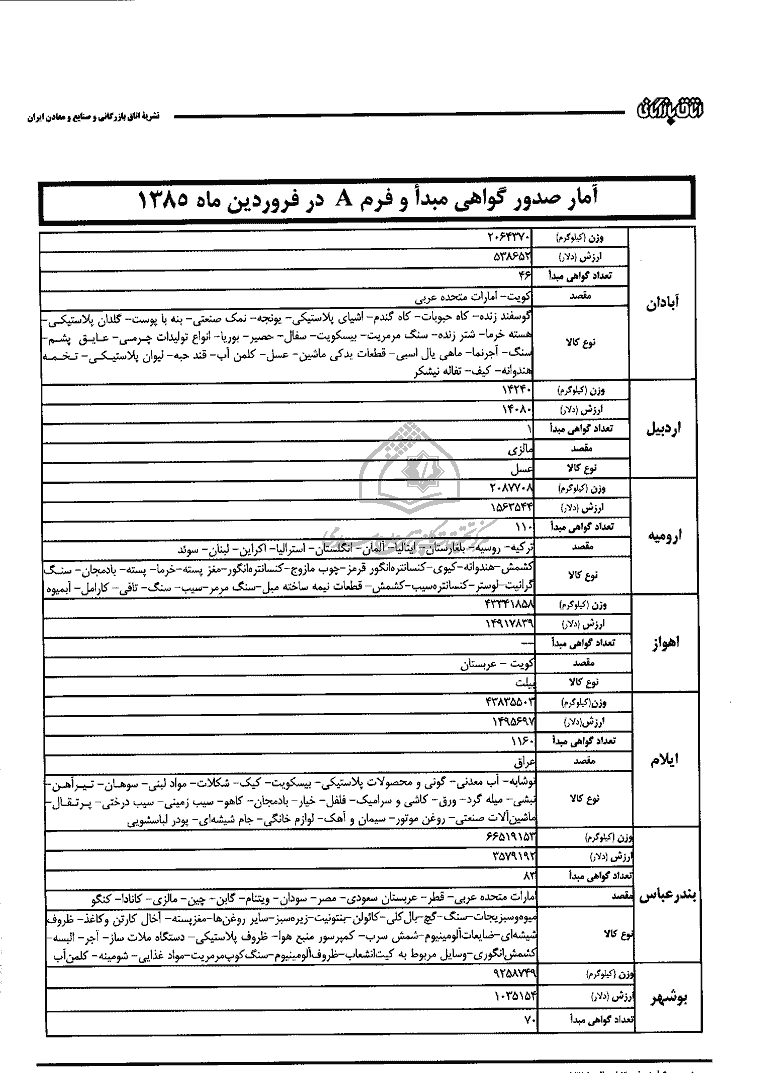 اتاق بازرگانی
نشریهٔ اتاق بازرگانی و صنایع و معادن ایران
آمار صدور گواهی مبدأ و فرم A در فروردین ماه ۱۳۸۵
آبادان
وزن (کیلوگرم) ۲۰۶۴۳۷۰
ارزش (دلار) ۵۳۸۶۵۲
تعداد گواهی مبدأ ۴۶
مقصد کویت- امارات متحده عربی
نوع کالا
گوسفند زنده- کاه حبوبات- کاه گندم- اشیای پلاستیکی- یونجه- نمک صنعتی- بنه با پوست- گلدان پلاستیکی-
هسته خرما- شتر زنده- سنگ مرمریت- بیسکویت- سفال- حصیر- بوریا- انواع تولیدات چرمی- عایق پشم-
سنگ- آجرنما- ماهی یال اسبی- قطعات یدکی ماشین- عسل- کلمن آب- قند حبه- لیوان پلاستیکی- تخمه
هندوانه- کیف- تفاله نیشکر
اردبیل
وزن (کیلوگرم) ۱۴۲۴۰
ارزش (دلار) ۱۴۰۸۰
تعداد گواهی مبدأ ۱
مقصد مالزی
نوع کالا عسل
ارومیه
وزن (کیلوگرم) ۲۰۸۷۷۰۸
ارزش (دلار) ۱۵۶۳۵۴۴
تعداد گواهی مبدأ ۱۱۰
مقصد ترکیه- روسیه- بلغارستان- ایتالیا- آلمان- انگلستان- استرالیا- اکراین- لبنان- سوئد
نوع کالا
کشمش-هندوانه-کیوی-کنسانتره‌انگور قرمز-چوب مازوج-کنسانتره‌انگور-مغز پسته-خرما- پسته- بادمجان- سنگ
گرانیت-لوستر-کنسانتره‌سیب-کشمش- قطعات نیمه ساخته مبل-سنگ مرمر-سیب- سنگ- تافی- کارامل- آبمیوه
اهواز
وزن (کیلوگرم) ۴۳۳۴۱۸۵۸
ارزش (دلار) ۱۴۹۱۷۸۳۹
تعداد گواهی مبدأ ---
مقصد کویت - عربستان
نوع کالا بیلت
ایلام
وزن(کیلوگرم) ۴۳۸۳۵۵۰۳
ارزش(دلار) ۱۴۹۵۶۹۷
تعداد گواهی مبدأ ۱۱۶۰
مقصد عراق
نوع کالا
نوشابه- آب معدنی- گونی و محصولات پلاستیکی- بیسکویت- کیک- شکلات- مواد لبنی- سوهان- تیرآهن-
نبشی- میله گرد- ورق- کاشی و سرامیک- فلفل- خیار- بادمجان- کاهو- سیب زمینی- سیب درختی- پرتقال-
ماشین‌آلات صنعتی- روغن موتور- سیمان و آهک- لوازم خانگی- جام شیشه‌ای- پودر لباسشویی
بندرعباس
وزن (کیلوگرم) ۶۶۵۱۹۱۵۳
ارزش (دلار) ۳۵۷۹۱۹۲
تعداد گواهی مبدأ ۸۳
مقصد امارات متحده عربی- قطر- عربستان سعودی- مصر- سودان- ویتنام- گابن- چین- مالزی- کانادا- کنگو
نوع کالا
میوه‌وسبزیجات- سنگ- گچ-بال‌کلی- کائولن- بنتونیت- زیره‌سبز- سایر روغن‌ها- مغزپسته- آخال کارتن وکاغذ- ظروف
شیشه‌ای- ضایعات‌آلومینیوم- شمش سرب- کمپرسور منبع هوا- ظروف پلاستیکی- دستگاه ملات ساز- آجر- البسه-
کشمش‌انگوری- وسایل مربوط به کیت‌انشعاب- ظروف‌آلومینیوم- سنگ‌کوپ‌مرمریت- مواد غذایی- شومینه- کلمن‌آب
بوشهر
وزن (کیلوگرم) ۹۲۵۸۷۴۹
ارزش (دلار) ۱۰۳۵۱۵۴
تعداد گواهی مبدأ ۷۰